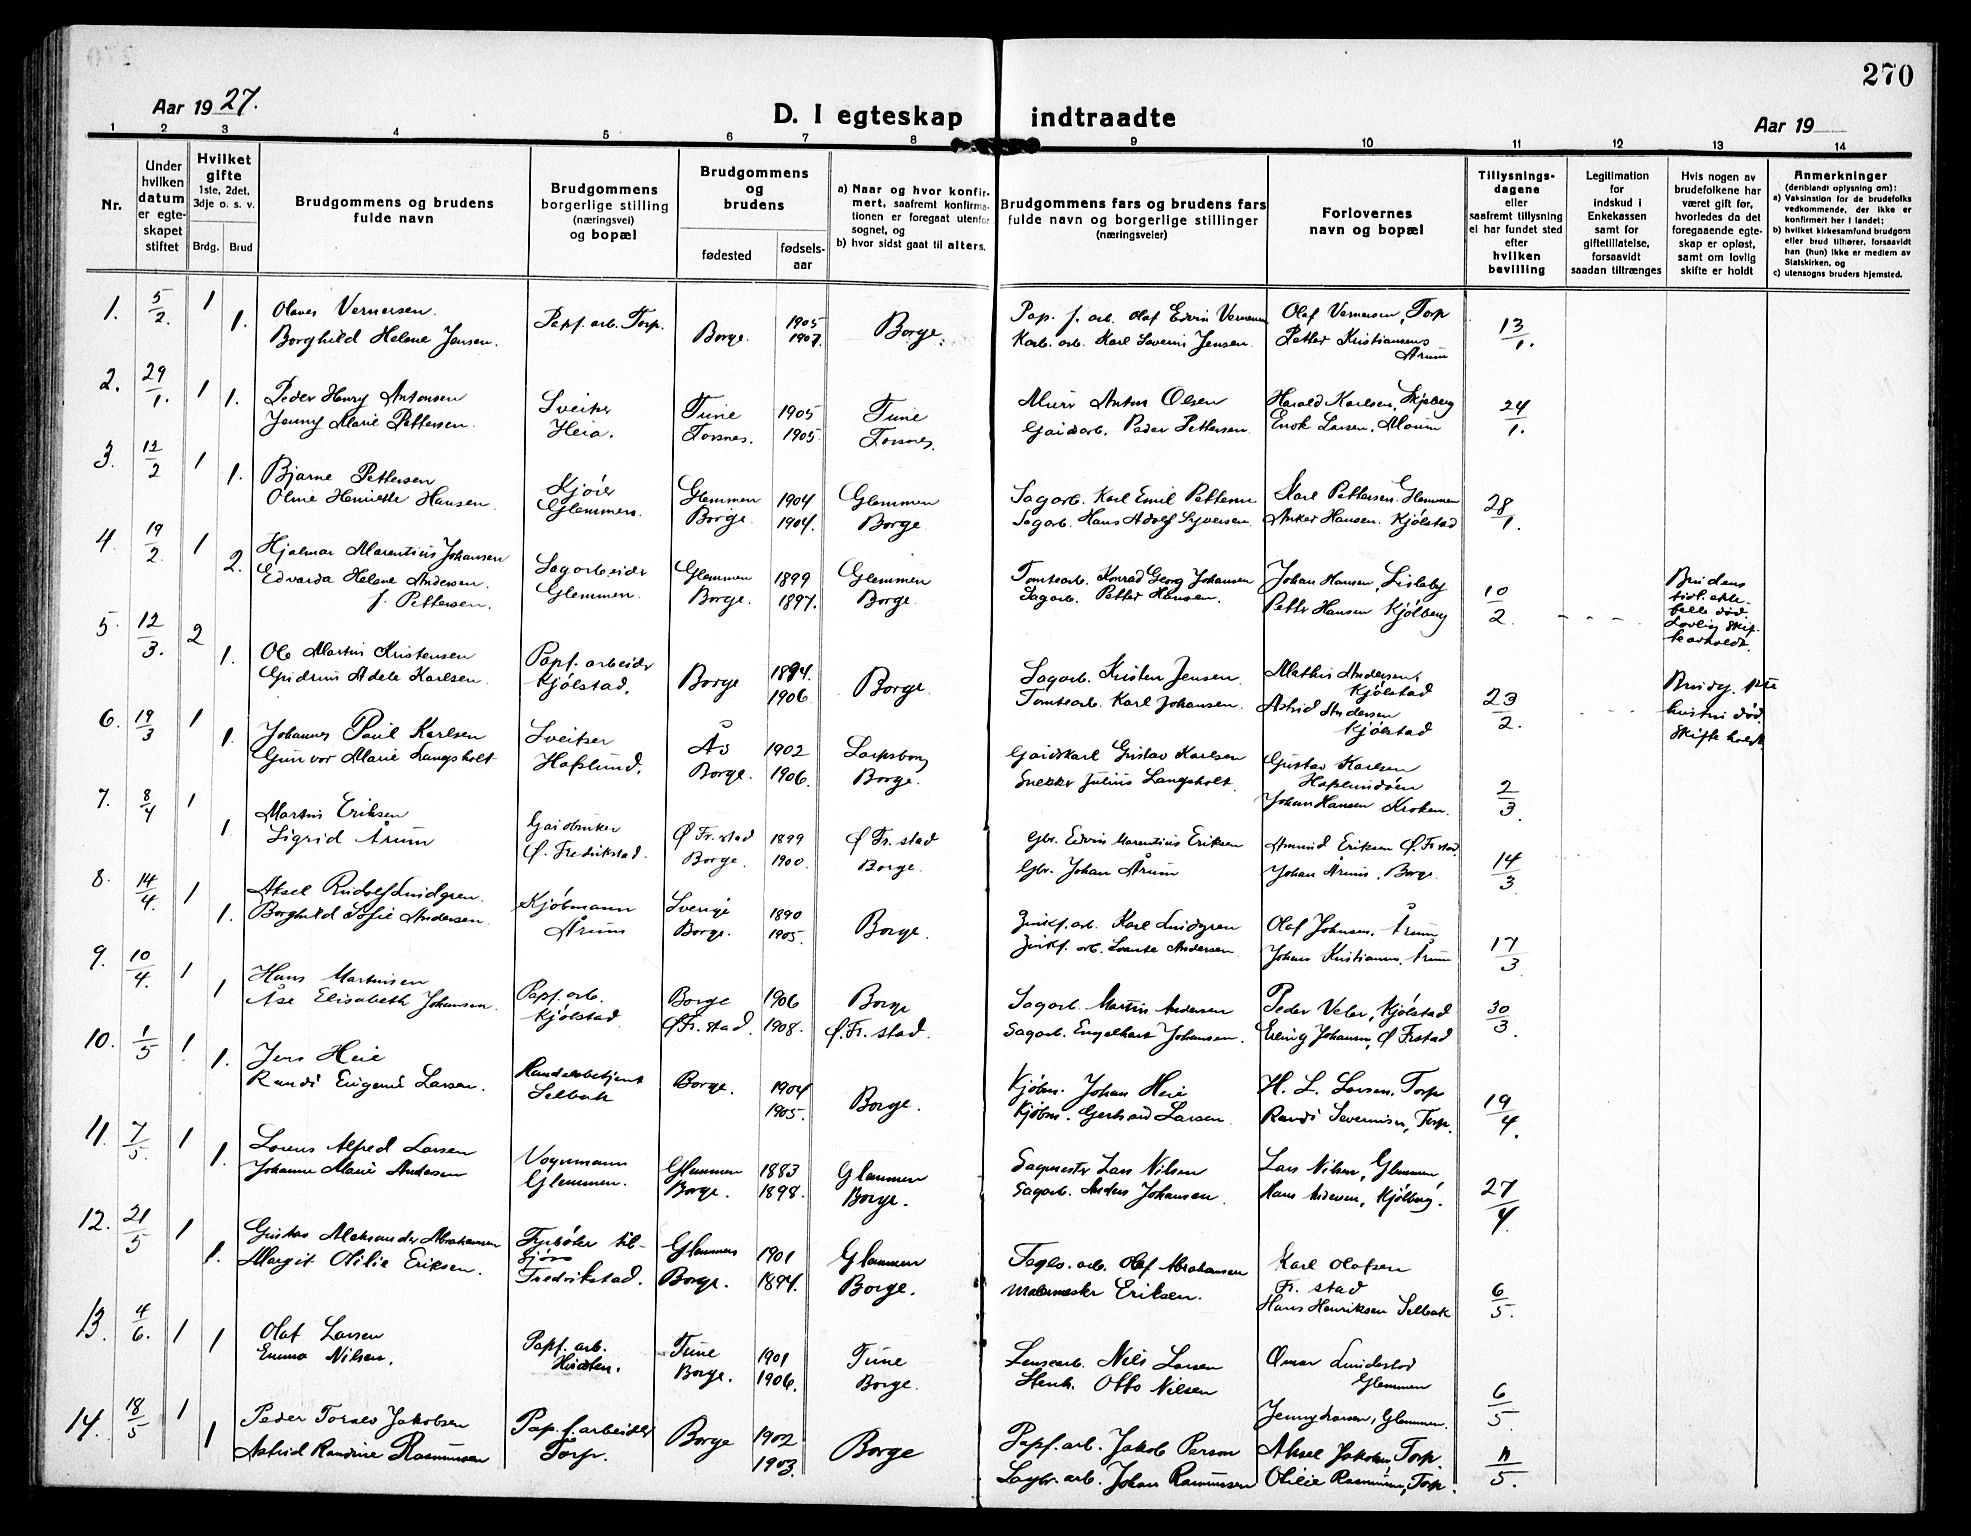 270
Aar 1927.
D. I egteskap indtraadte
Aar 19
1 2 3 4 5 6 7 8 9 10 11 12 13 14
Nr.
Under hvilken datum er egteskapet stiftet
Hvilket gifte 1ste, 2det, 3dje o. s. v.
Brdg. Brud
Brudgommens og brudens fulde navn
Brudgommens borgerlige stilling (næringsvei) og bopæl
Brudgommens og brudens
fødested
fødselsaar
a) Naar og hvor konfirmert, saafremt konfirmationen er foregaat utenfor sognet, og
b) hvor sidst gaat til alters.
Brudgommens fars og brudens fars fulde navn og borgerlige stillinger (næringsveier)
Forlovernes navn og bopæl
Tillysningsdagene eller saafremt tillysning ei har fundet sted efter hvilken bevilling
Legitimation for indskud i Enkekassen samt for giftetillatelse, forsaavidt saadan tiltrænges
Hvis nogen av brudefolkene har været gift før, hvorledes da det foregaaende egteskap er opløst, samt om lovlig skifte er holdt
Anmerkninger (deriblandt oplysning om):
a) Vaksination for de brudefolks vedkommende, der ikke er konfirmert her i landet;
b) hvilket kirkesamfund brudgom eller brud tilhører, forsaavidt han (hun) ikke er medlem av Statskirken, og
c) utensogns bruders hjemsted.
1. 5/2. 1 Olaves Vernersen. Papf. arb. Torp. 1905 Pap. f. arb. Olaf Edvin Olaf Vernersen, Torp 13/1.
1. Borghild Helene Jensen. Borge. 1907. Borge. Karl Severin Jensen. Petter Kristiansens
Årum
2. 29/1. 1 Peder Henry Antonsen Sveitser Tune 1905 Tune Murer Anton Olsen Harald Karlsen, Skjeberg 24/1.
1. Jenny Marie Pettersen. Heia. Torsnes. 1905. Torsnes. Gaardarb. Peder Pettersen. Enok Larsen,
3. 12/2 1 Bjarne Pettersen Kjører Glemmen 1904 Glemmen Sagarb. Karl Emil Karl Pettersen. Glemmen 28/1.
1. Henriette Hansen. Glemmen. Borge 1904. Borge Sagarb. Hans Adolf Syversen. Anker Hansen. Kjølstad
4. 19/2 1 Hjalmar Marentius Johansen Sagarbeider Glemmen 1899 Glemmen Tomtearb. Konrad Georg Johansen Johan Hansen, Lisleby 10/2. Brudens
2. Edvarda Helene Andersen. Glemmen. Borge. 1897. Borge. Sagarb. Petter Hansen. Petter Hansen Kjølberg
f. Pettersen.
død
Lovlig skif-
te avholdt.
5. 12/3. 2 Ole Martin Kristensen Papf. arbeider Borge 1894. Borge. Sagarb. Kristen Jensen. Mathis Andersen, 23/2.
1. Gudrun Adele Karlsen. Kjølstad. 1906 Tomtearb. Karl Johansen. Kjølstad
Astrid Andersen
Kjølstad
Brudg. 1ste
hustru død
Skifte holdt
6. 19/3 1 Johannes Paul Karlsen Sveitser Ås 1902 Sarpsborg Gaardskarl Gustav Karlsen Gustav Karlsen 2/3.
1. Gunvor Marie Langsholt Hafslund. Borge. 1906. Borge. Snekker Julius Langsholt. Hafslundsøen
Johan Hansen Kroken.
7. 8/4 1 Martin Eriksen Gaardbruker Ø Fr.stad 1899 Ø Fr. stad Gbr. Edvin Marentius Eriksen Amund Eriksen Ø. Fr stad. 14/3.
1. Sigrid Årum Ø. Fredrikstad. Borge. 1900. Borge. Gbr. Johan Årum Johan Årum, Borge.
8. 14/4. 1 Aksel Rudolf Lindgren. Kjøbmann Sverige 1890 Borge. Karl Lindgren Olaf Johnsen, Årum 17/3
1. Borghild Sofie Andersen. Årum Borge. 1905. Andersen. Johan Årum
9. 10/4. 1 Hans Martinsen Papf. arb. Borge 1906 Borge Sagarb. Martin Andersen Peder Veler, Kjølstad 30/3.
1 Åse Elisabeth Johansen. Kjølstad Ø Fr. stad. 1908. Ø. Fr. stad. Sagarb. Engelhart Johansen. Erling Johansen, Ø Frstad
10. 1/5 1 Jens Heie Handelsbetjent Borge. 1904 Borge. Kjøbm. Johan Heie H. L. Larsen, Torp 19/4.
1. Randi Eugenie Larsen. Selbak 1905. Kjøbm. Gerhard Larsen. Randi Severinsen, Torp.
11. 7/5. 1 Lorens Alfred Larsen Vognmann Glemmen 1883 Glemmen Sagmester Lars Nilsen Lars Nilsen, Glemmen 27/4.
1. Johanne Marie Andersen Glemmen. Borge. 1898. Borge. Sagarb. Anders Johansen. Hans Andersen, Kjølberg.
12. 21/5 1 Gustav Aleksander Abrahamsen Fyrbøter til- Glemmen 1901 Glemmen Teglv. arb. Olaf Abrahamsen Karl Olafsen 6/5.
1. Margit Otilie Eriksen. sjøs Borge. 1894. Borge. Malermester Eriksen. Fr. stad
Fredrikstad. Hans Henriksen Selbak
13. 4/6. 1 Olaf Larsen Papf. arb. Tune 1901 Tune Lensearb. Nils Larsen Omar Lundestad 6/5.
1 Emma Nilsen. Borge. 1906. Borge. Otto Nilsen Glemmen
Jenny Larsen, Glemmen.
14. 18/5 1 Peder Torlev Jakobsen Pap. f. arbeider Borge 1902 Borge Papf. arb. Jakob Person Aksel Jakobsen, Torp 11/5.
1 Astrid Randine Rasmussen Torp. 1903. arb. Johan Rasmussen Otilie Rasmussen, Torp.